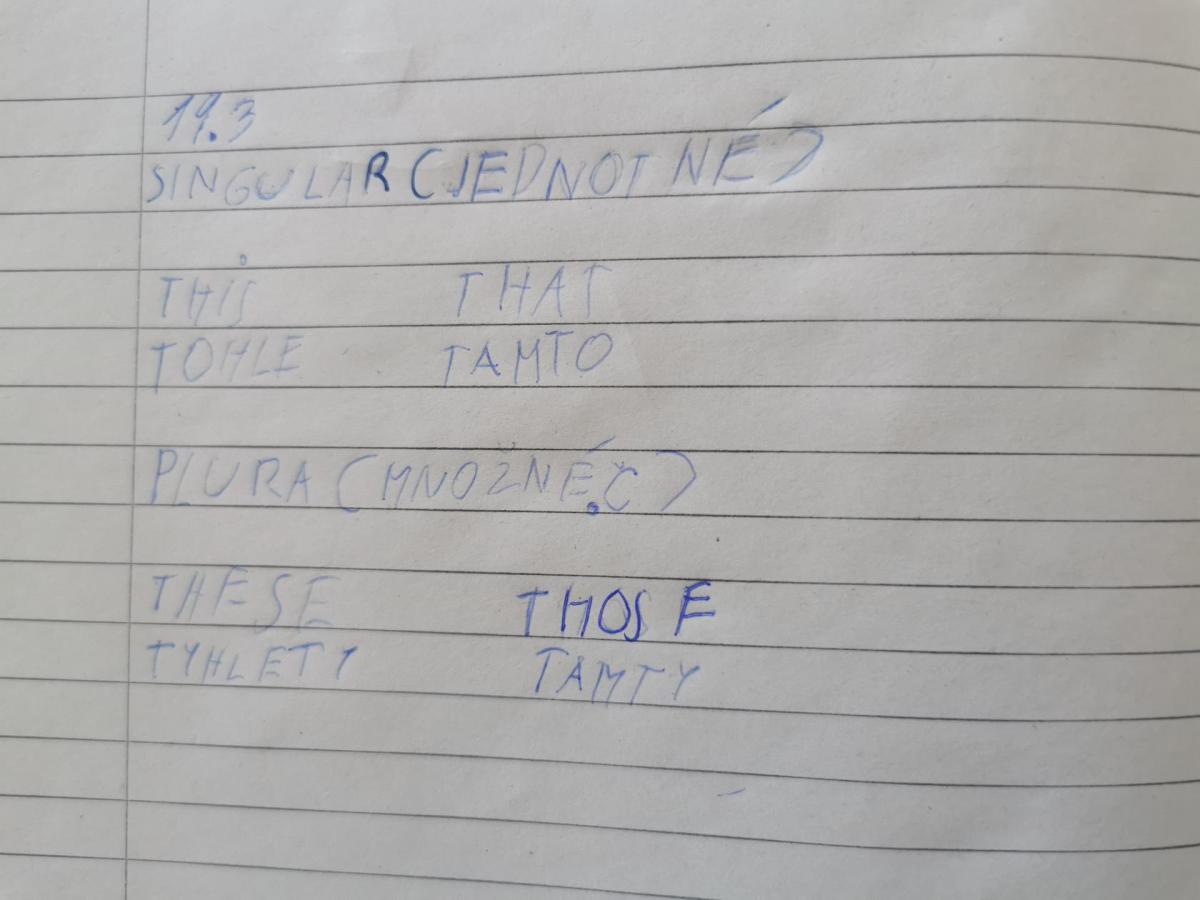 19.3
SINGULAR (JEDNOTNÉ)
THIS THAT
TOHLE TAMTO
PLURA (MNOŽNÉ.Č)
THESE THOSE
TYHLETY TAMTY